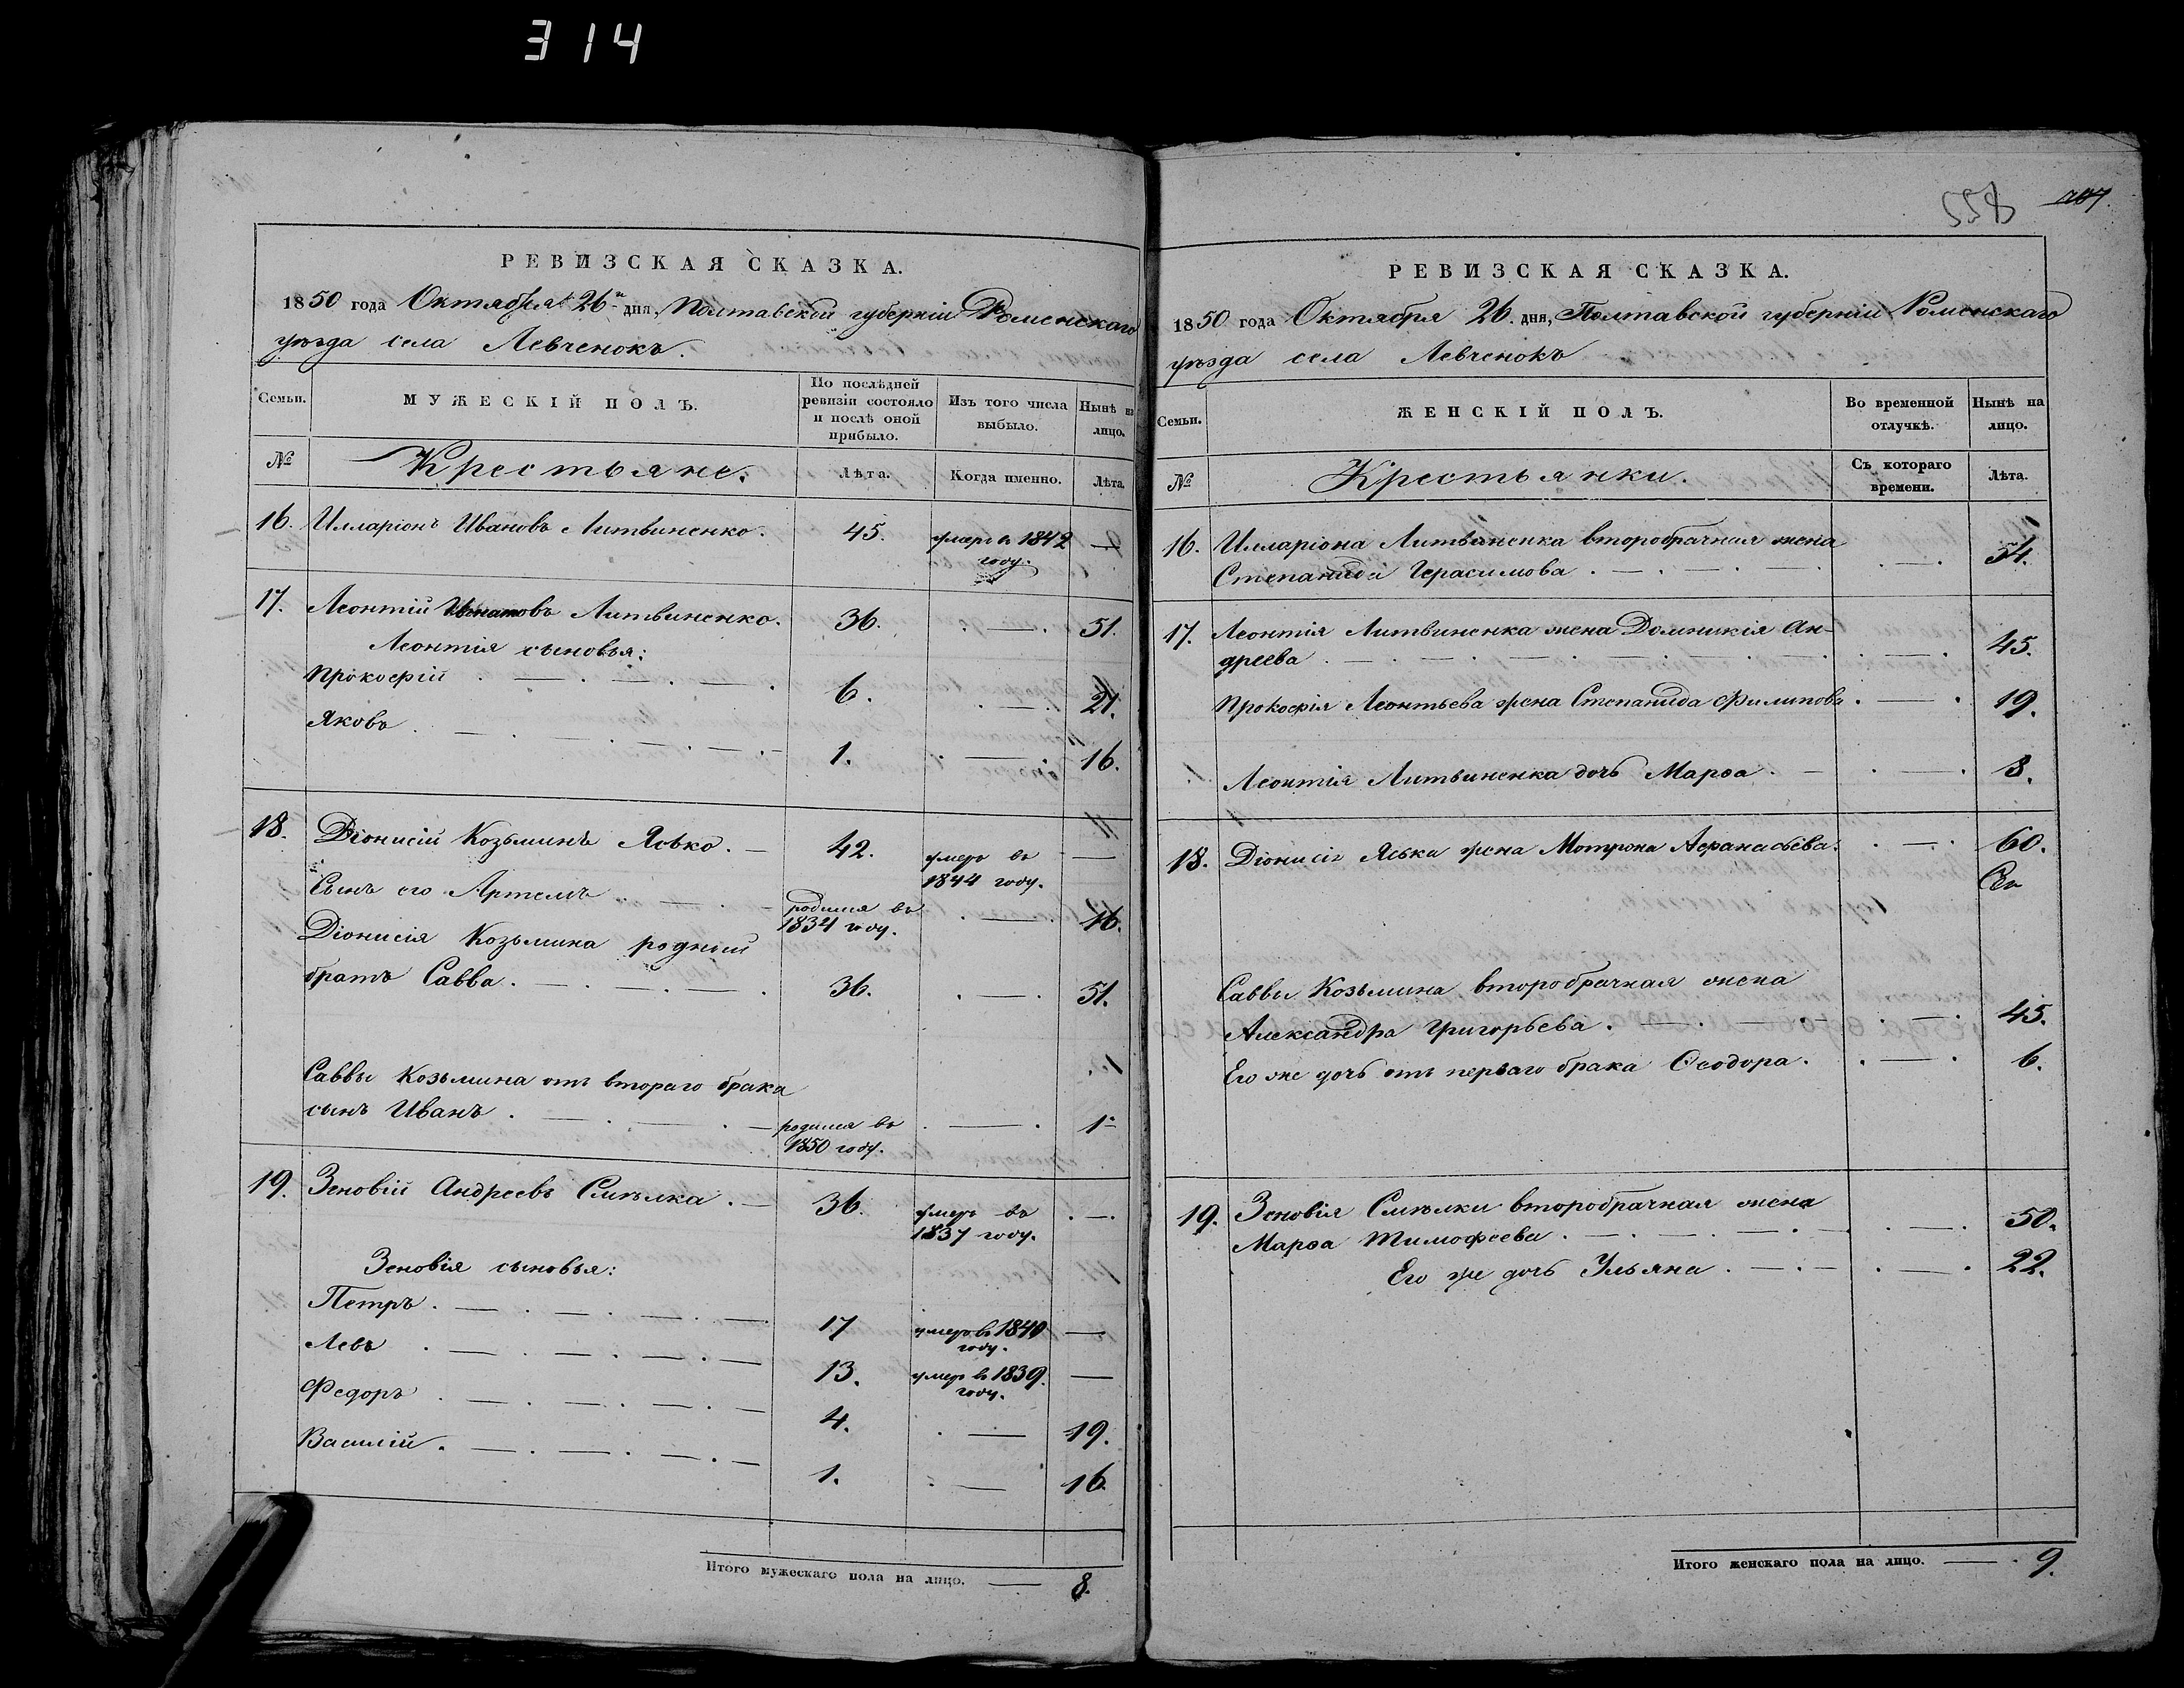 314
РЕВИЗСКАЯ СКАЗКА.
1850 года Октября 26го дня, Полтавской губерніи Роменскаго
уѣзда села Левченокъ.
Семьи.
МУЖЕСКІЙ ПОЛЪ.
По послѣдней ревизіи состояло и послѣ оной прибыло.
Изъ того числа выбыло.
Нынѣ на лицо.
№
Крестьяне.
Лѣта.
Когда именно.
Лѣта.
16. Илларіонъ Ивановъ Литвиненко. 45. умеръ въ 1842 —
году.
17. Леонтій Литвиненко. 36. . — . 51.
Леонтія сыновья:
Прокофій . — . — . — . 6. . — . 21.
Яковъ . — . — . — . — 1. . — . 16.
18. Діонисій Козьминъ Ясько. — 42. умеръ въ —
1844 году.
Сынъ его Артемъ . — . — родился въ . — 16.
1834 году.
Діонисія Козьмина родный
братъ Савва. — . — . — . 36. . — . 51.
Саввы Козьмина отъ втораго брака
сынъ Иванъ . — . — . — родился въ . — . 1
1850 году.
19. Зеновій Андреевъ Смѣлка . — 36. умеръ въ . — .
1837 году.
Зеновія сыновья:
Петръ . — . — . — . — 17 умеръ въ 1840 —
году.
Левъ . — . — . — . — 13. умеръ въ 1839. —
году.
Федоръ . — . — . — . — 4. . — 19.
Василій . — . — . — . — 1. . — 16.
Итого мужескаго пола на лицо. — 8.
558 207.
РЕВИЗСКАЯ СКАЗКА.
1850 года Октября 26. дня, Полтавской губерніи Роменскаго
уѣзда села Левченокъ
Семьи.
ЖЕНСКІЙ ПОЛЪ.
Во временной отлучкѣ.
Нынѣ на лицо.
№
Крестьянки.
Съ котораго времени.
Лѣта.
16. Илларіона Литвиненка второбрачная жена
Степанида Герасимова . — . — . — . . — . 54.
17. Леонтія Литвиненка жена Домникія Ан-
дреева . — . — . — . — . — . . — . 45.
Прокофія Леонтьева жена Степанида Филипова . — . 19.
Леонтія Литвиненка дочь Марѳа . — . — . 8.
18. Діонисія Яська жена Мотрона Афанасьева. . — . 60.
Саввы Козьмина второбрачная жена
Александра Григорьева . — . — . — . — . 45.
Его же дочь отъ перваго брака Ѳеодора . . — . 6.
19. Зеновія Смѣлки второбрачная жена
Марѳа Тимофеева . — . — . — . — . — . 50.
Его же дочь Ульяна . — . — . — . 22.
Итого женскаго пола на лицо. — . 9.